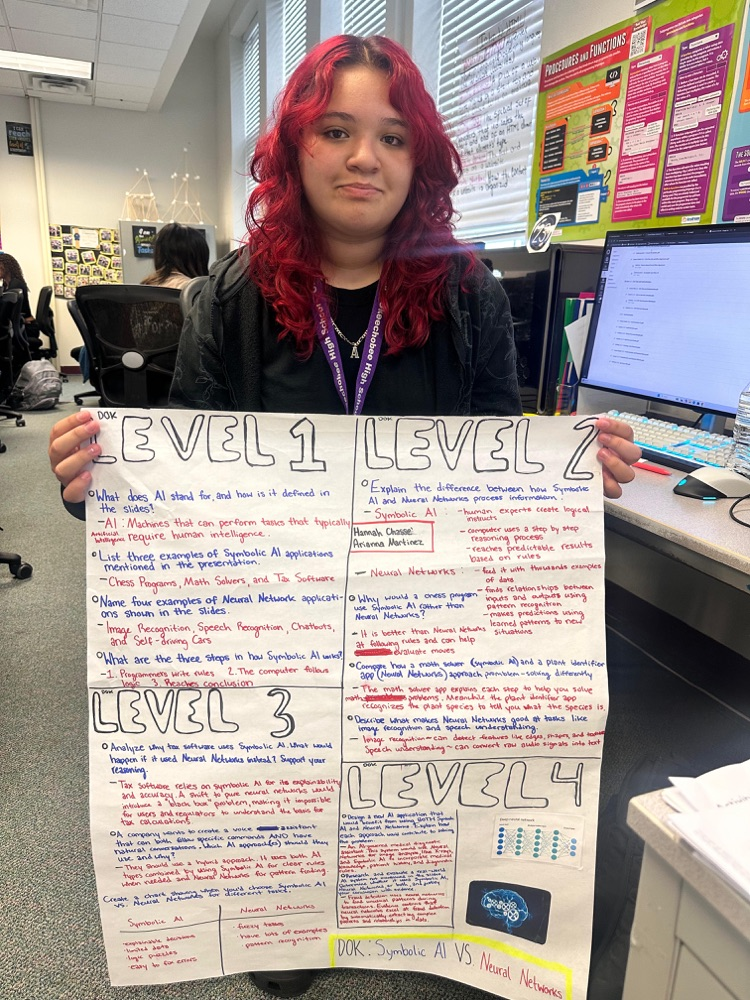 PROCEDURES AND FUNCTIONS
Okeechobee High School
A
DOK
LEVEL 1
What does AI stand for, and how is it defined in
the slides?
- AI: Machines that can perform tasks that typically
Artificial Intelligence require human intelligence.
List three examples of Symbolic AI applications
mentioned in the presentation.
- Chess Programs, Math Solvers, and Tax Software
Name four examples of Neural Network applicati-
ons shown in the slides.
- Image Recognition, Speech Recognition, Chatbots,
and Self-driving Cars
What are the three steps in how Symbolic AI works?
-1. Programmers write rules 2. The computer follows
logic 3. Reaches conclusion
DOK
LEVEL 2
Explain the difference between how Symbolic
AI and Neural Networks process information:
- Symbolic AI : - human experts create logical
instructs
- computer uses a step by step
reasoning process
- reaches predictable results
based on rules
Hannah Chasse
Arianna Martinez
- Neural Networks : - feed it with thousands examples
of data
- finds relationships between
inputs and outputs using
pattern recognition
- makes predictions using
learned patterns to new
situations
Why would a chess program
use Symbolic AI rather than
Neural Networks?
- It is better than Neural Networks
at following rules and can help
evaluate moves
Compare how a math solver (symbolic AI) and a plant identifier
app (Neural Network) approach problem-solving differently
- The math solver app explains each step to help you solve
math problems. Meanwhile the plant identifier app
recognizes the plant species to tell you what the species is.
Describe what makes Neural Networks good at tasks like
image recognition and speech understanding.
- Image recognition - can detect features like edges, shapes, and
Speech understanding - can convert raw audio signals into text
DOK
LEVEL 3
Analyze why tax software uses Symbolic AI. What would
happen if it used Neural Networks instead? Support your
reasoning.
- Tax Software relies on symbolic AI for its explainability
and accuracy. A shift to pure neural networks would
introduce a "black box" problem, making it impossible
for users and regulators to understand the basis for
tax calculations.
A company wants to create a voice assistant
that can both follow specific commands AND have
natural conversations. Which AI approach(s) should they
use and why?
- They should use a hybrid approach. It uses both AI
types combined by using Symbolic AI for clear rules
when needed and Neural Networks for pattern finding.
Create a chart showing when you'd choose Symbolic AI
vs. Neural Networks for different tasks.
Symbolic AI
Neural Networks
- explainable decisions
- limited data
- logic puzzles
- easy to fix errors
fuzzy tasks
have lots of examples
pattern recognition
DOK
LEVEL 4
Design a new AI application that
would benefit from using BOTH Symbolic
AI and Neural Networks. Explain how
each approach would contribute to
solving the problem.
DOK: Symbolic AI VS. Neural Networks